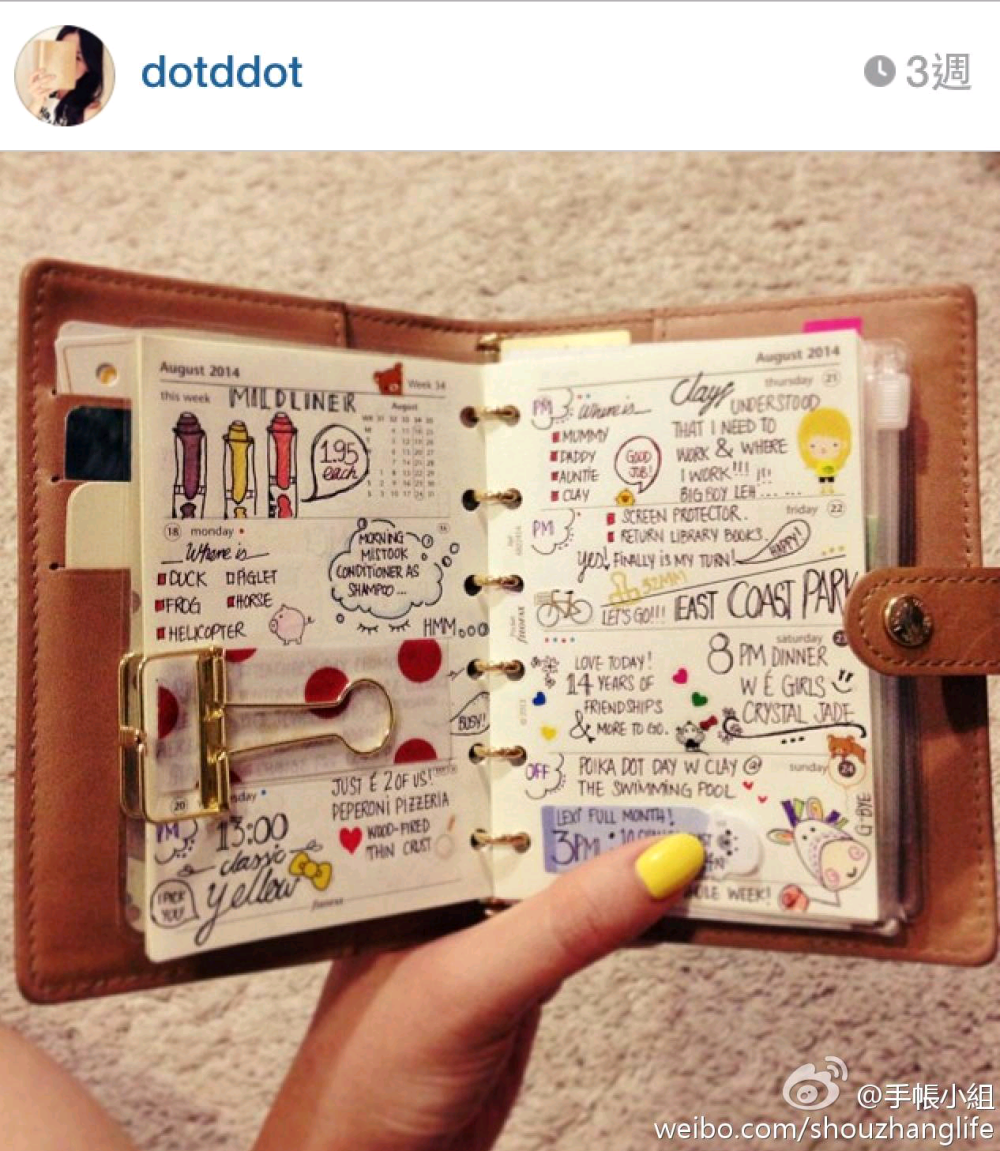 dotddot
3週
August 2014
Week 34
this week
MILDLINER
August
1.95
each
18 monday
Where is
DUCK PIGLET
FROG HORSE
HELICOPTER
MORNING
MISTOOK
CONDITIONER AS
SHAMPOO...
HMM...
BUSY!
20
PM
13:00
classic
Yellow
I PICK
YOU!
JUST & 2 OF US!
PEPERONI PIZZERIA
WOOD-FIRED
THIN CRUST
August 2014
thursday 21
PM
Where is
MUMMY
DADDY
AUNTIE
CLAY
GOOD
JOB!
Clay UNDERSTOOD
THAT I NEED TO
WORK & WHERE
I WORK!!! !!!
BIG BOY LEH......
friday 22
PM
SCREEN PROTECTOR.
RETURN LIBRARY BOOKS.
yes! FINALLY IS MY TURN!
HAPPY!
LET'S GO!!! EAST COAST PARK
saturday 23
LOVE TODAY!
14 YEARS OF
FRIENDSHIPS
& MORE TO GO.
8 PM DINNER
W & GIRLS
CRYSTAL JADE
sunday 24
OFF
POLKA DOT DAY W CLAY @
THE SWIMMING POOL
G-BYE
LEXI FULL MONTH!
3PM
WHOLE WEEK!
@手帳小組
weibo.com/shouzhanglife